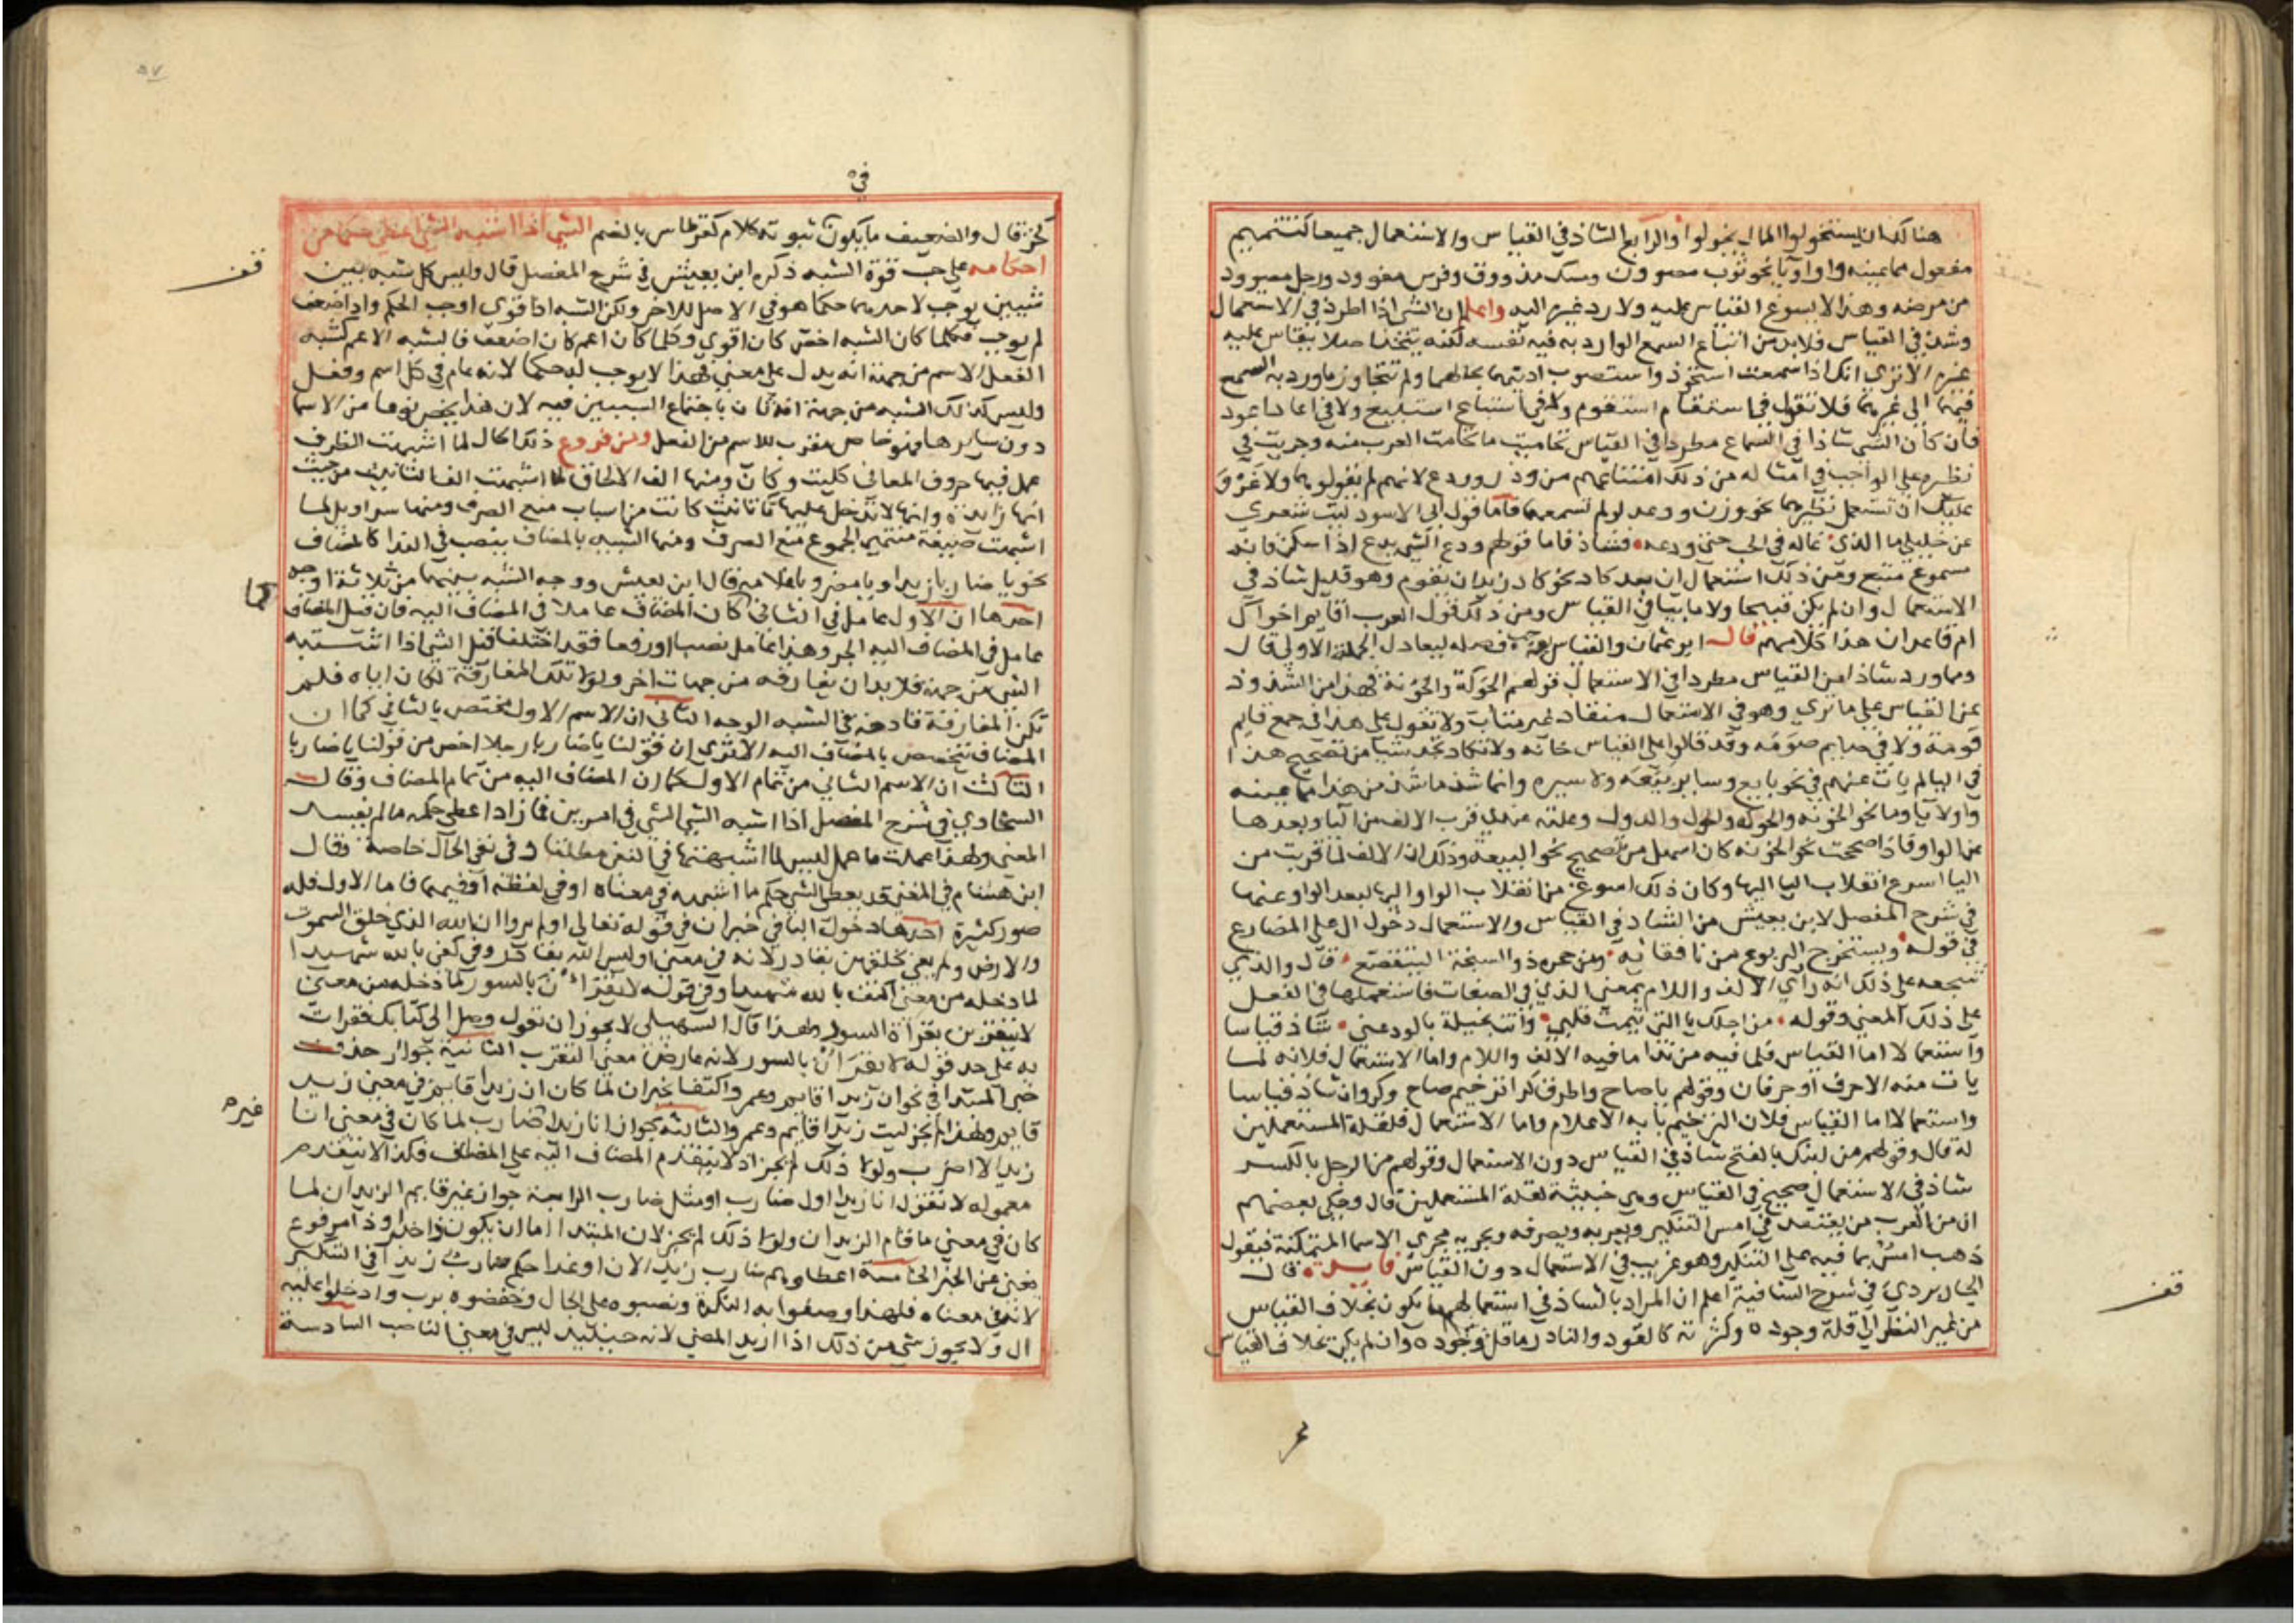 هنالك ان يستخولوا المال يخولوا والرابع الشاذ في القياس والاستعمال جميعا كتتميم
مفعول مما عينه واو او يا نحو ثوب مصوون ومسك مدووف وفرس مقوود ورجل معوود
من مرضه وهذا لا يسوغ القياس عليه ولا رد غيره اليه واعلم ان الشي اذا اطرد في الاستعمال
وشذ في القياس فلا بد من اتباع السمع الوارد به فيه نفسه لكنه يتخذ اصلا يقاس عليه
غيره الا ترى انك اذا سمعت استحوذ واستصوب اديتهما بحالهما ولم تتجاوز ما ورد به السمع
فيهما الى غيرهما فلا تقول في استقام استقوم ولا في استباع استبيع ولا في اعاد اعود
فان كان الشي شاذا في السماع مطردا في القياس تحاميت ما تحامت العرب منه وجريت في
نظيره على الواجب في امثاله من ذلك امتناعهم من وذر وودع لانهم لم يقولوهما ولا غرو
عليك ان تستعمل نظيرهما نحو وزن ووعد لو لم تسمعهما فاما قول ابي الاسود ليت شعري
عن خليلي ما الذي غاله في الحب حتى ودعه فشاذ فاما قولهم ودع الشي يدع اذا سكن فانه
مسموع متبع ومن ذلك استعمال ان بعد كاد نحو كاد زيد ان يقوم وهو قليل شاذ في
الاستعمال وان لم يكن قبيحا ولا مابيا في القياس ومن ذلك قول العرب اقايم اخواك
ام قاعدان هذا كلامهم قال ابو عثمان والقياس يوجب فصله ليعادل الجملة الاولى قال
ومما ورد شاذا من القياس مطردا في الاستعمال قولهم الحوكة والخونة فهذا من الشذوذ
عن القياس على ما ترى وهو في الاستعمال منقاد غير متاب ولا تقول على هذا في جمع قايم
قومة ولا في صايم صومه وقد قالوا على القياس خانه ولا تكاد تجد شيا من تصحيح هذا
في اليا لم يات عنهم في نحو بايع وساير بيعه ولا سيره وانما شذ ما شذ من هذا مما عينه
واو لا يا وما نحو الخونه والحوكه والحول والدول وعلته عندي قرب الالف من اليا وبعدها
عن الواو فاذا صححت نحو الخونه كان اسهل من تصحيح نحو البيعه وذلك ان الالف لما قربت من
اليا اسرع انقلاب اليا اليها وكان ذلك اسوغ من انقلاب الواو اليها لبعد الواو عنها
في شرح المفصل لابن يعيش من الشاذ في القياس والاستعمال دخول ال على المضارع
في قوله ويستخرج اليربوع من نافقائه ومن جحره ذو الشيخة اليتقصع قال والذي
شجعه على ذلك انه راي الالف واللام بمعنى الذي في الصفات فاستعملها في الفعل
على ذلك المعنى وقوله من اجلك يا التي تيمت قلبي وانت بخيلة بالود عني شاذ قياسا
واستعمالا اما القياس فلما فيه من ندا ما فيه الالف واللام واما الاستعمال فلانه لم
يات منه الا حرف او حرفان وقولهم يا صاح واطرق كرا ترخيم صاح وكروان شاذ قياسا
واستعمالا اما القياس فلان الترخيم بابه الاعلام واما الاستعمال فلقلة المستعملين
له قال وقولهم من لدنك بالفتح شاذ في القياس دون الاستعمال وقولهم من الرجل بالكسر
شاذ في الاستعمال صحيح في القياس وهي خبيثة لقلة المستعملين قال وحكى بعضهم
ان من العرب من يعتقد في امس التنكير ويعربه ويصرفه ويجريه مجرى الاسما المتمكنة فيقول
ذهب امس بما فيه على التنكير وهو غريب في الاستعمال دون القياس فايدة قال
الجاربردي في شرح الشافية اعلم ان المراد بالشاذ في استعمالهم ما يكون بخلاف القياس
من غير النظر الى قلة وجوده وكثرته كالقود والنادر ما قل وجوده وان لم يكن بخلاف القياس
قف
٥٧
في
كخزقال والضعيف ما يكون ثبوته كلام كقرطاس بالضم الشي اذا اشبه الشي اعطي حكما من
احكامه على حسب قوة الشبه ذكره ابن يعيش في شرح المفصل قال وليس كل شبه بين
شيين يوجب لاحدهما حكما هو في الاصل للاخر ولكن الشبه اذا قوى اوجب الحكم واذا ضعف
لم يوجب فكلما كان الشبه اخص كان اقوى وكلما كان اعم كان اضعف فالشبه الاعم كشبه
الفعل الاسم من جهة انه يدل على معنى فهذا لا يوجب له حكما لانه عام في كل اسم وفعل
وليس كذلك الشبه من جهة انه ثان باجتماع السببين فيه لان هذا يخص نوعا من الاسما
دون سايرها فهو خاص مقرب للاسم من الفعل ومن فروع ذلك الحال لما اشبهت الظرف
عمل فيها حروف المعاني كليت وكان ومنها الف الالحاق لما اشبهت الف التانيث من حيث
انها زايدة وانها لا تدخل عليها تا تانيث كانت من اسباب منع الصرف ومنها سراويل لما
اشبهت صيغة منتهى الجموع منع الصرف ومنها الشبيه بالمضاف ينصب في الندا كالمضاف
نحو يا ضاربا زيدا ويا مضروبا غلامه قال ابن يعيش ووجه الشبه بينهما من ثلاثة اوجه
احدها ان الاول عامل في الثاني كان المضاف عاملا في المضاف اليه فان قيل المضاف
كما
عامل في المضاف اليه الجر وهذا عامل نصبا او رفعا فقد اختلفا قيل الشي اذا اشبه
الشي من جهة فلا بد ان يفارقه من جهات اخر ولولا تلك المفارقة لكان اياه فلم
تكن المفارقة قادحة في الشبه الوجه الثاني ان الاسم الاول مختص بالثاني كما ان
المضاف تتخصص بالمضاف اليه الا ترى ان قولنا يا ضاربا رجلا اخص من قولنا يا ضاربا
الثالث ان الاسم الثاني من تمام الاول كما ان المضاف اليه من تمام المضاف وقال
السخاوي في شرح المفصل اذا اشبه الشي الشي في امرين فما زاد اعطي حكمه ما لم يفسد
المعنى ولهذا عملت ما عمل ليس لما اشبهتها في النفي مطلقا وفي نفي الحال خاصة وقال
ابن هشام في المغني قد يعطى الشي حكم ما اشبهه في معناه او في لفظه او فيهما فاما الاول فله
صور كثيرة احدها دخول البا في خبر ان في قوله تعالى اولم يروا ان الله الذي خلق السموت
والارض ولم يعي بخلقهن بقادر لانه في معنى اوليس الله بقادر وفي كفى بالله شهيدا
لما دخله من معنى اكتف بالله شهيدا وفي قوله لا يقران بالسور لما دخله من معنى
لا يتقربن بقراة السور ولهذا قال السهيلي لا يجوز ان تقول وصل الى كتابك فقرات
به على حد قوله لا يقران بالسور لانه عار من معنى التقرب الثانية جواز حذف
خبر المبتدا في نحو ان زيدا قايم وعمرو واكتفا بخبر ان لما كان ان زيدا قايم في معنى زيد
قايم ولهذا لم يجز ليت زيدا قايم وعمرو الثالثة جواز انا زيدا ضارب لما كان في معنى انا
غيره
زيدا لا اضرب ولولا ذلك لم يجز اذ لا يتقدم المضاف اليه على المضاف فكذا لا يتقدم
معموله لا تقول انا زيدا اول ضارب او مثل ضارب الرابعة جواز غير قايم الزيدان لما
كان في معنى ما قام الزيدان ولولا ذلك لم يجز لان المبتدا اما ان يكون ذا خبر او ذا مرفوع
يغني عن الخبر الخامسة اعطاوهم ضارب زيد الان او غدا حكم ضارب زيدا في التنكير
لانه في معناه فلهذا وصفوا به النكرة ونصبوه على الحال وخفضوه برب وادخلوا عليه
ال ولا يجوز شي من ذلك اذا اريد المضي لانه حينئذ ليس في معنى الناصب السادسة
قف